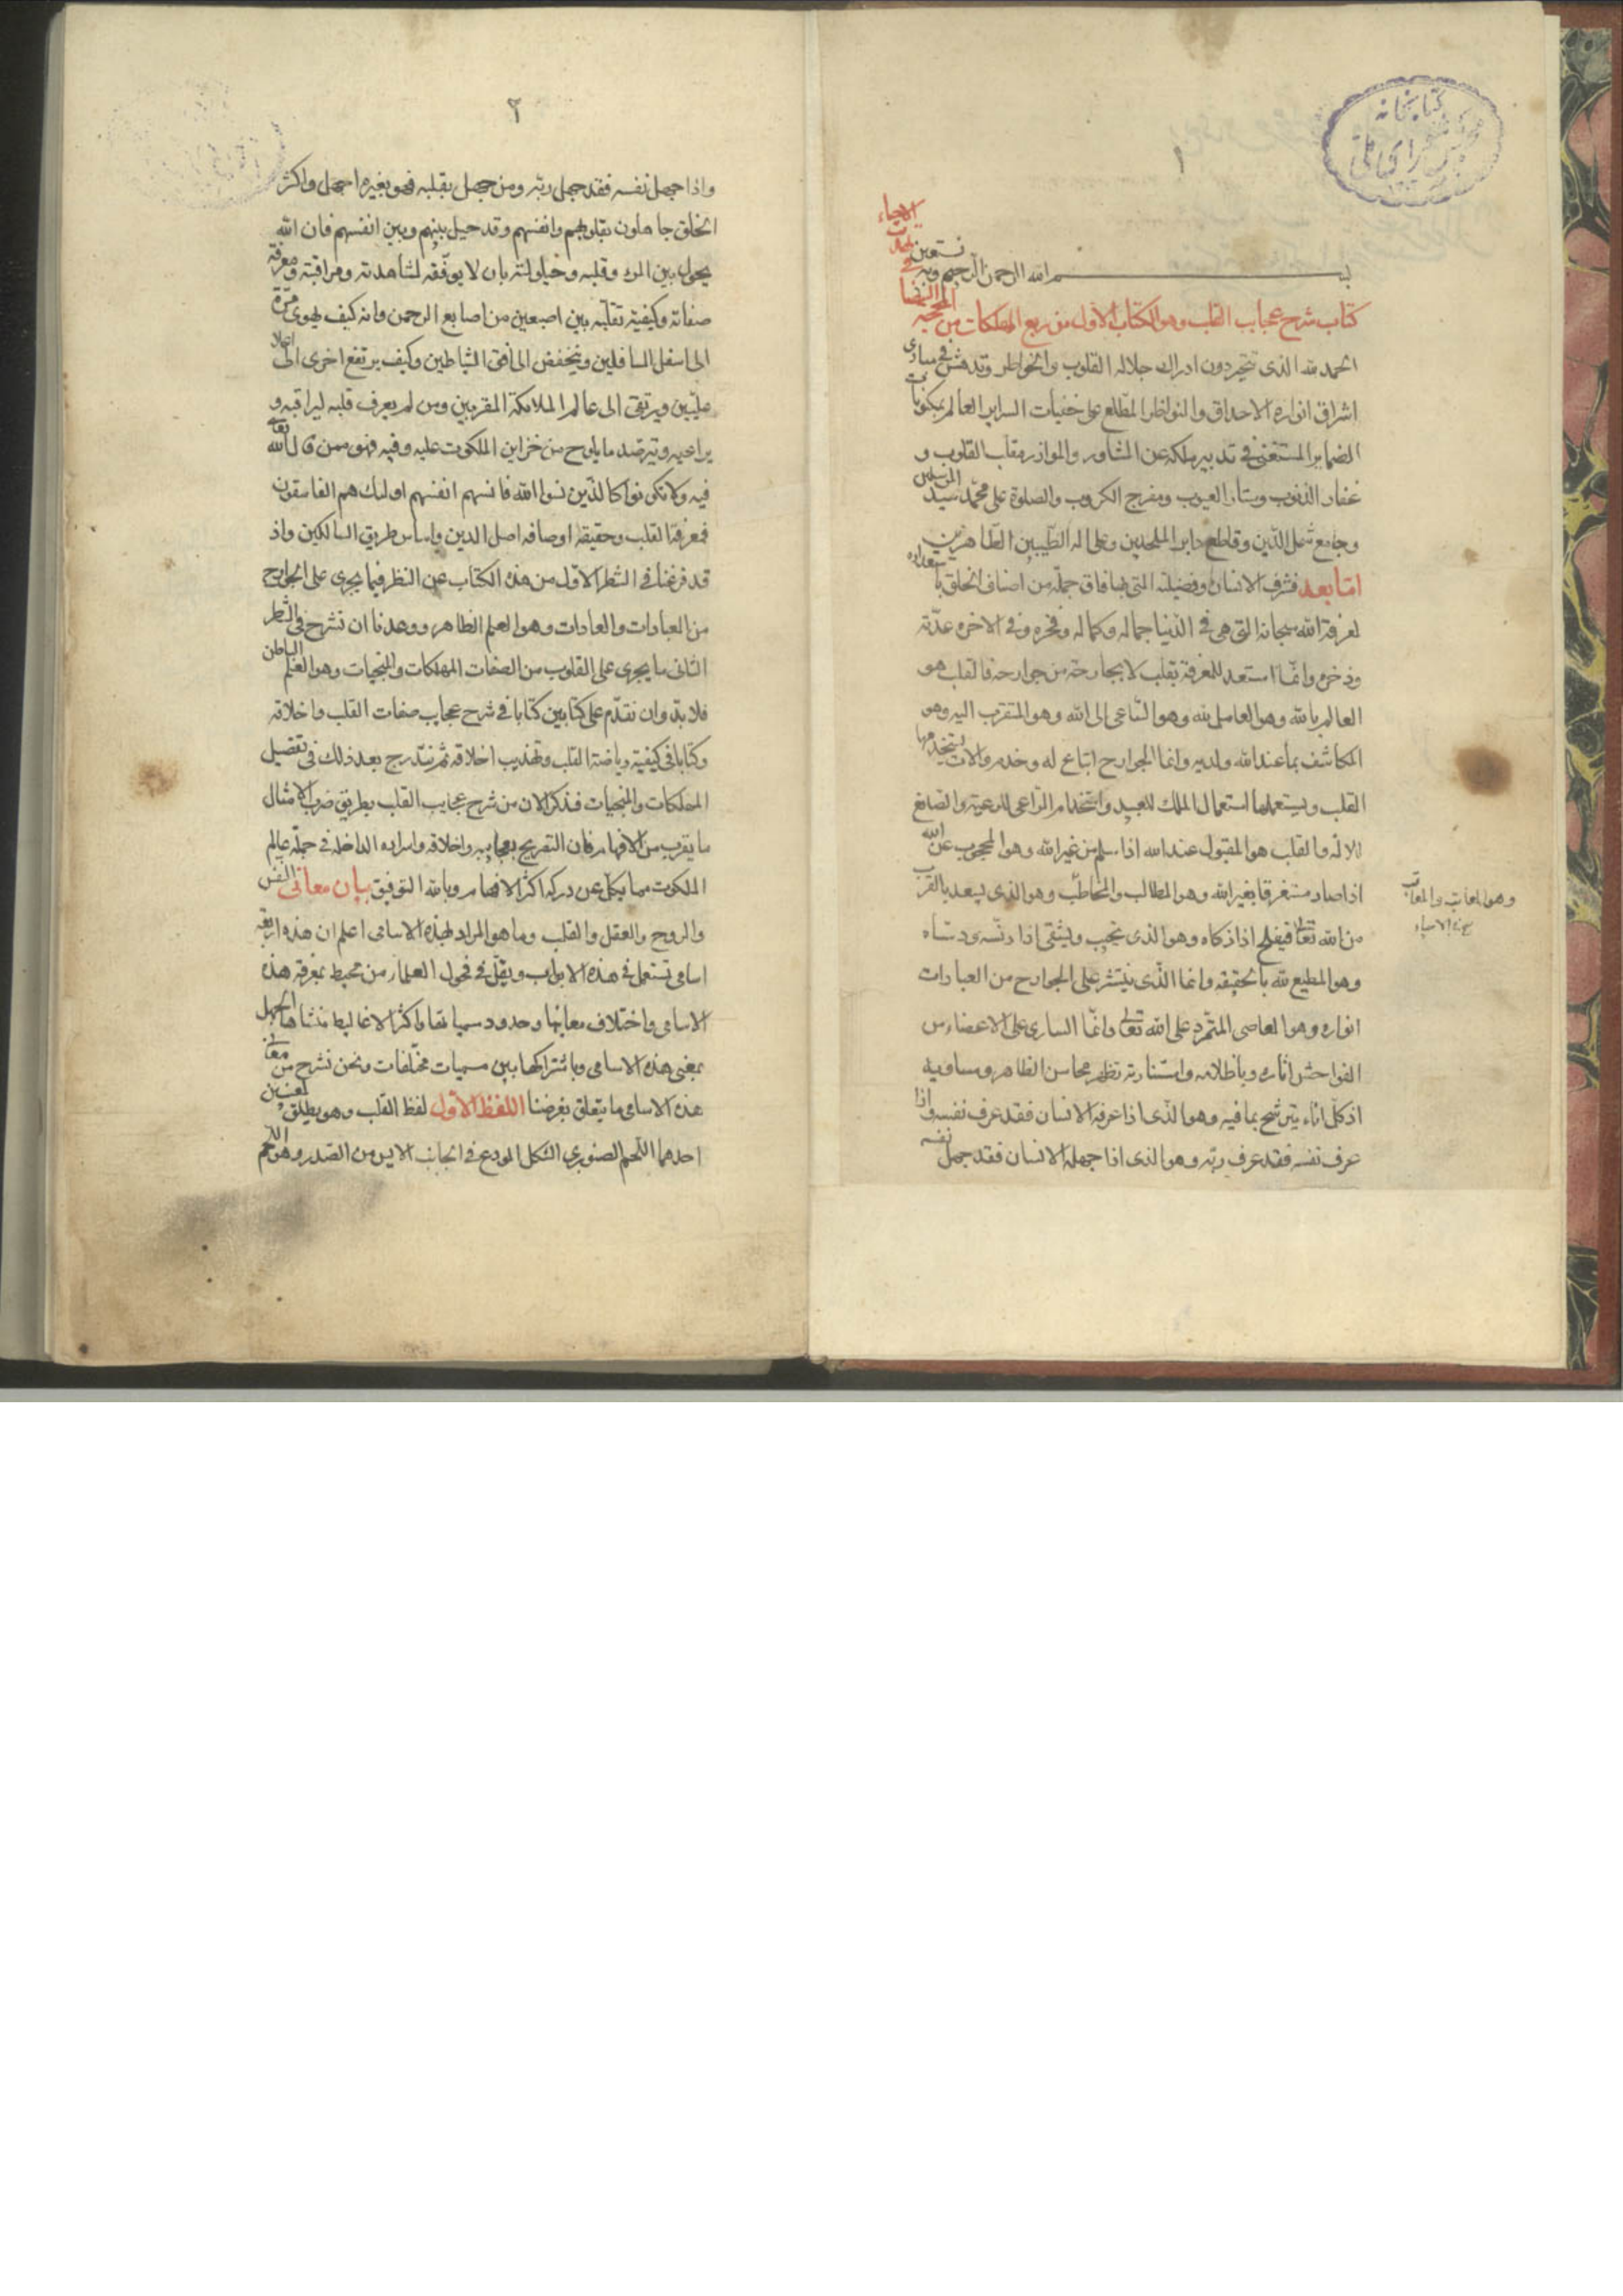 كتابخانه
مجلس شورای ملی
١
بسم الله الرحمن الرحيم وبه نستعين
كتاب شرح عجايب القلب وهو الكتاب الاول من ربع المهلكات من المحجة البيضاء في تهذيب الاحياء
الحمد لله الذى تتحير دون ادراك جلاله القلوب والخواطر وتدهش فى مبادى
اشراق انواره الاحداق والنواظر المطلع على خفيات السراير العالم بمكنونات
الضماير المستغنى فى تدبير ملكه عن المشاور والموازر مقلب القلوب و
غفار الذنوب وستار العيوب ومفرج الكروب والصلوة على محمد سيد المرسلين
وجامع شمل الدين وقاطع دابر الملحدين وعلى اله الطيبين الطاهرين
اما بعد فشرف الانسان وفضيلته التى بها فاق جملة من اصناف الخلق باستعداده
لمعرفة الله سبحانه التى هى فى الدنيا جماله وكماله وفخره وفى الاخره عدته
وذخره وانما استعد للمعرفة بقلبه لا بجارحة من جوارحه فالقلب هو
العالم بالله وهو العامل لله وهو الساعى الى الله وهو المتقرب اليه وهو
المكاشف بما عند الله ولديه وانما الجوارح اتباع له وخدم والات يستخدمها
القلب ويستعملها استعمال الملك للعبيد واستخدام الراعى للرعية والصانع
للالة والقلب هو المقبول عند الله اذا سلم من غير الله وهو المحجوب عن الله
اذا صار مستغرقا بغير الله وهو المطالب والمخاطب وهو الذى يسعد بالقرب
وهو المعاتب والمعاقب
من الله تعالى فيفلح اذا زكاه وهو الذى يخيب ويشقى اذا دنسه ودساه
وهو المطيع لله بالحقيقه وانما الذى ينتشر على الجوارح من العبادات
انواره وهو العاصى المتمرد على الله تعالى وانما السارى على الاعضاء من
الفواحش اثاره وباظلامه واستنارته تظهر محاسن الظاهر ومساويه
اذ كل اناء يترشح بما فيه وهو الذى اذا عرفه الانسان فقد عرف نفسه واذا
عرف نفسه فقد عرف ربه وهو الذى اذا جهله الانسان فقد جهل نفسه
٢
واذا جهل نفسه فقد جهل ربه ومن جهل بقلبه فهو بغيره اجهل واكثر
الخلق جاهلون بقلوبهم وانفسهم وقد حيل بينهم وبين انفسهم فان الله
يحول بين المرء وقلبه وحيلولته بان لا يوفقه لمشاهدته ومراقبته ومعرفة
صفاته وكيفية تقلبه بين اصبعين من اصابع الرحمن وانه كيف يهوى مرة
الى اسفل السافلين وينخفض الى افق الشياطين وكيف يرتفع اخرى الى اعلا
عليين ويرتقى الى عالم الملائكة المقربين ومن لم يعرف قلبه ليراقبه و
يراعيه ويترصد ما يلوح من خزاين الملكوت عليه وفيه فهو ممن قال الله تعالى
فيه ولا تكونوا كالذين نسوا الله فانسهم انفسهم اولئك هم الفاسقون
فمعرفة القلب وحقيقة اوصافه اصل الدين واساس طريق السالكين واذ
قد فرغنا فى الشطر الاول من هذه الكتاب عن النظر فيما يجرى على الجوارح
من العبادات والعادات وهو العلم الظاهر ووعدنا ان نشرح فى الشطر
الثانى ما يجرى على القلوب من الصفات المهلكات والمنجيات وهو العلم الباطن
فلا بد وان نقدم على كتابين كتابا فى شرح عجايب صفات القلب واخلاقه
وكتابا فى كيفية رياضة القلب وتهذيب اخلاقه ثم نندرج بعد ذلك فى تفصيل
المهلكات والمنجيات فنذكر الان من شرح عجايب القلب بطريق ضرب الامثال
ما يقرب من الافهام فان التصريح بعجايبه واخلاقه واسراره الداخلة فى جملة عالم
الملكوت مما يكل عن دركه اكثر الافهام وبالله التوفيق بيان معانى النفس
والروح والعقل والقلب وما هو المراد لهذه الاسامى اعلم ان هذه اربعة
اسامى تستعمل فى هذه الابواب ويقل فى فحول العلماء من تحيط بمعرفة هذه
الاسامى واختلاف معانيها وحدود مسمياتها واكثر الاغاليط منشاها الجهل
بمعنى هذه الاسامى وباشتراكها بين مسميات مختلفات ونحن نشرح من معانى
هذه الاسامى ما يتعلق بغرضنا اللفظ الاول لفظ القلب وهو يطلق لمعنيين
احدهما اللحم الصنوبرى الشكل المودع فى الجانب الايسر من الصدر وهو اللحم